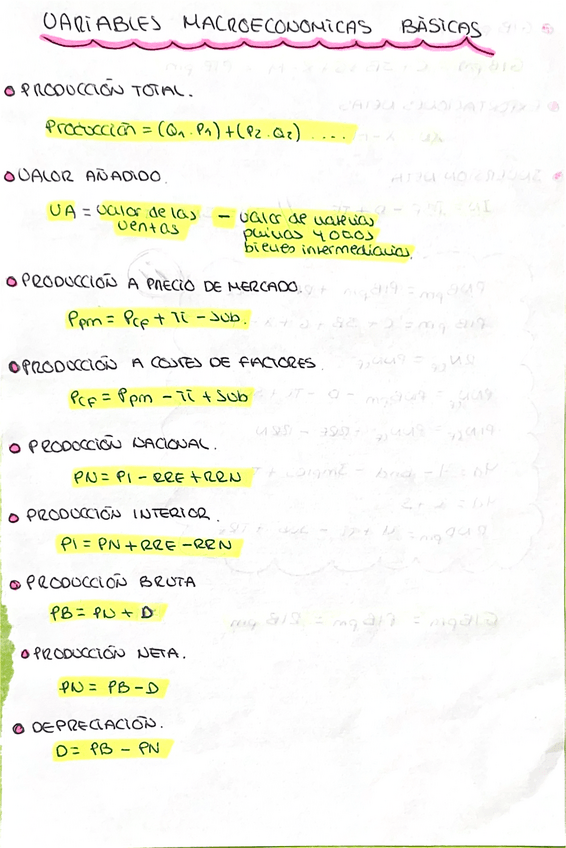 VARIABLES MACROECONOMICAS BÁSICAS
PRODUCCIÓN TOTAL.
Producción = (Q1 · P1) + (P2 · Q2) ....
VALOR AÑADIDO.
VA = valor de las ventas – valor de materias primas y otros bienes intermediarios.
PRODUCCIÓN A PRECIO DE MERCADO.
Ppm = Pcf + Ti – Sub.
PRODUCCIÓN A COSTES DE FACTORES.
Pcf = Ppm – Ti + Sub
PRODUCCIÓN NACIONAL.
PN = PI – RRE + RRN
PRODUCCIÓN INTERIOR.
PI = PN + RRE – RRN
PRODUCCIÓN BRUTA
PB = PN + D
PRODUCCIÓN NETA.
PN = PB – D
DEPRECIACIÓN.
D = PB – PN